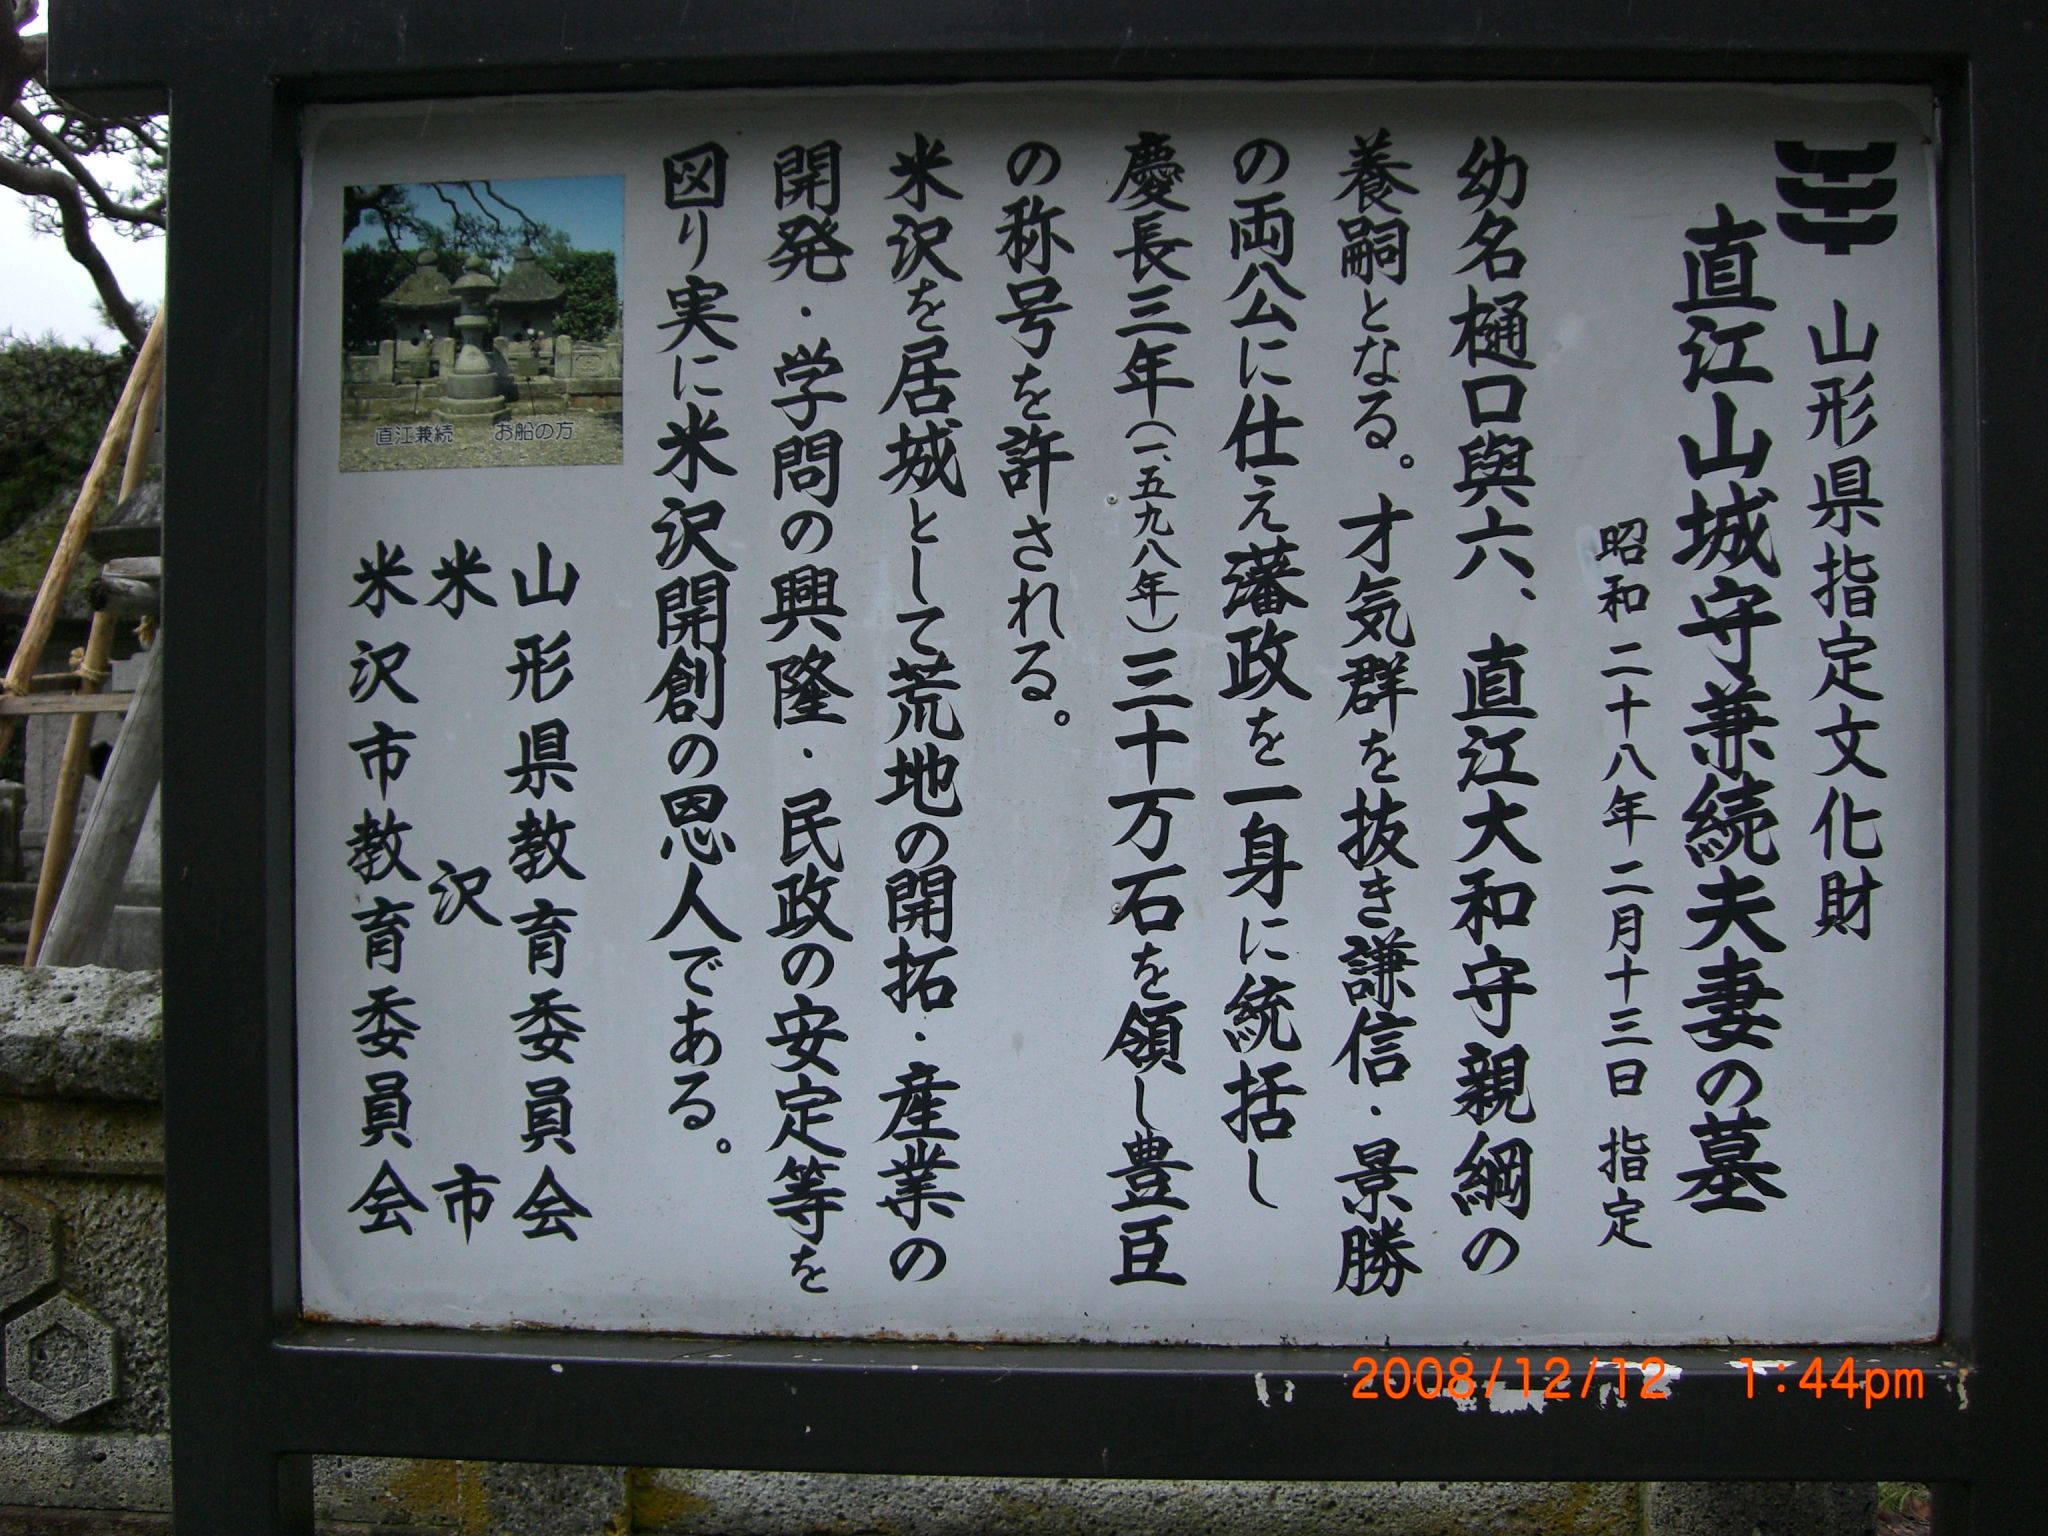 山形県指定文化財
直江山城守兼続夫妻の墓
昭和二十八年二月十三日 指定
幼名樋口與六、直江大和守親綱の
養嗣となる。才気群を抜き謙信・景勝
の両公に仕え藩政を一身に統括し
慶長三年(一、五九八年)三十万石を領し豊臣
の称号を許される。
米沢を居城として荒地の開拓・産業の
開発・学問の興隆・民政の安定等を
図り実に米沢開創の恩人である。
直江兼続 お船の方
山形県教育委員会
米沢市
米沢市教育委員会
2008/12/12 1:44pm